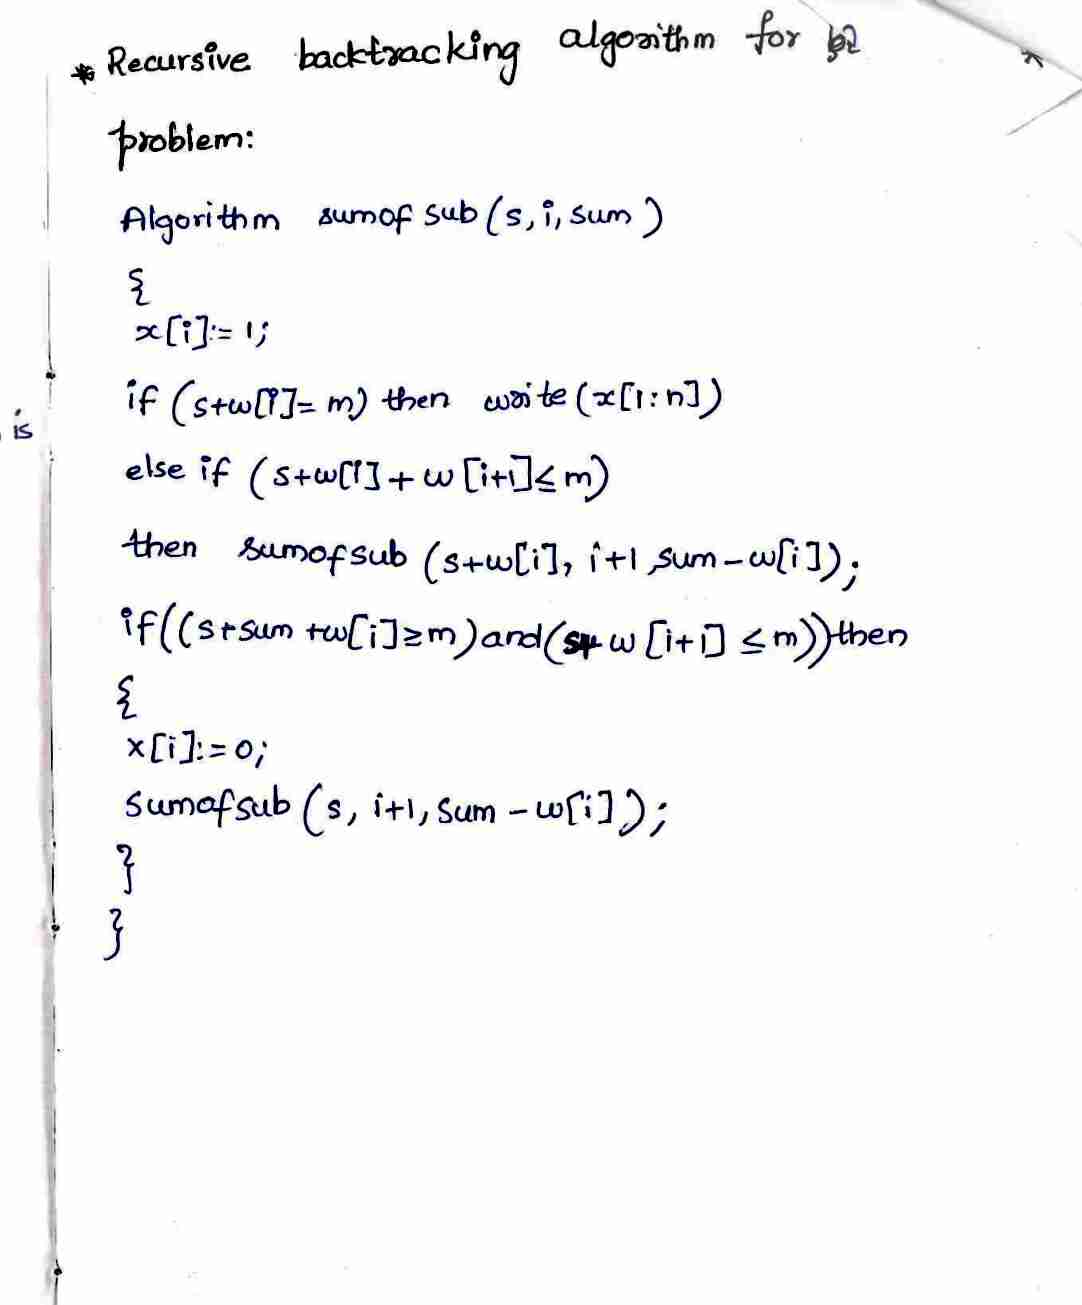 * Recursive backtracking algorithm for
problem:
Algorithm sumof sub (s, i, sum)
{
x[i]:= 1;
if (s+w[i]= m) then write (x[1:n])
is
else if (s+w[i] + w [i+1]≤ m)
then sumofsub (s+w[i], i+1, sum - w[i]);
if((s+sum +w[i]≥m) and (s+ w [i+1] ≤ m)) then
{
x[i]:= 0;
sumofsub (s, i+1, sum - w[i]);
}
}